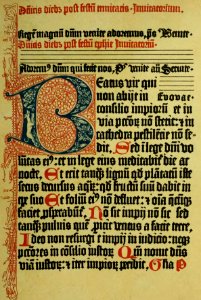 Dñicis diebꝫ post festũ trinitatis. Invitatoriũ.
Regẽ magnũ dñm venite adoremus, p̄s Venite.
Dñicis diebꝫ post festũ ephie Invitatoriũ.
Adoremꝰ dñm qui fecit nos, P̄s venite añ Servite.
Beatus vir qui
non abijt in Evovae
consilio impiorũ et in
via pccõꝝ nõ stetit: et in
cathedra pestilẽcie nõ se=
dit. Sed ĩ lege dñi vo=
lũtas eiꝰ: et in lege eius meditabit᷑ die ac
nocte. Et erit tanqꝫ lignũ qđ plãtatũ
secus decursus aqꝝ: qđ fructũ suũ dabit in
tp̄e suo Et foliũ eiꝰ nõ defluet: et oĩa qcũqꝫ
faciet ꝓspabũt. Nõ sic impij nõ sic: sed
tanqꝫ pulvis quẽ ꝓicit ventus a facie terre,
Ideo non resurgũt impij in iudicio: neqꝫ
pccõres in cõsilio iustoꝝ. Qm̃ novit dñs
viã iustoꝝ: et iter impioꝝ peribit, Gła P